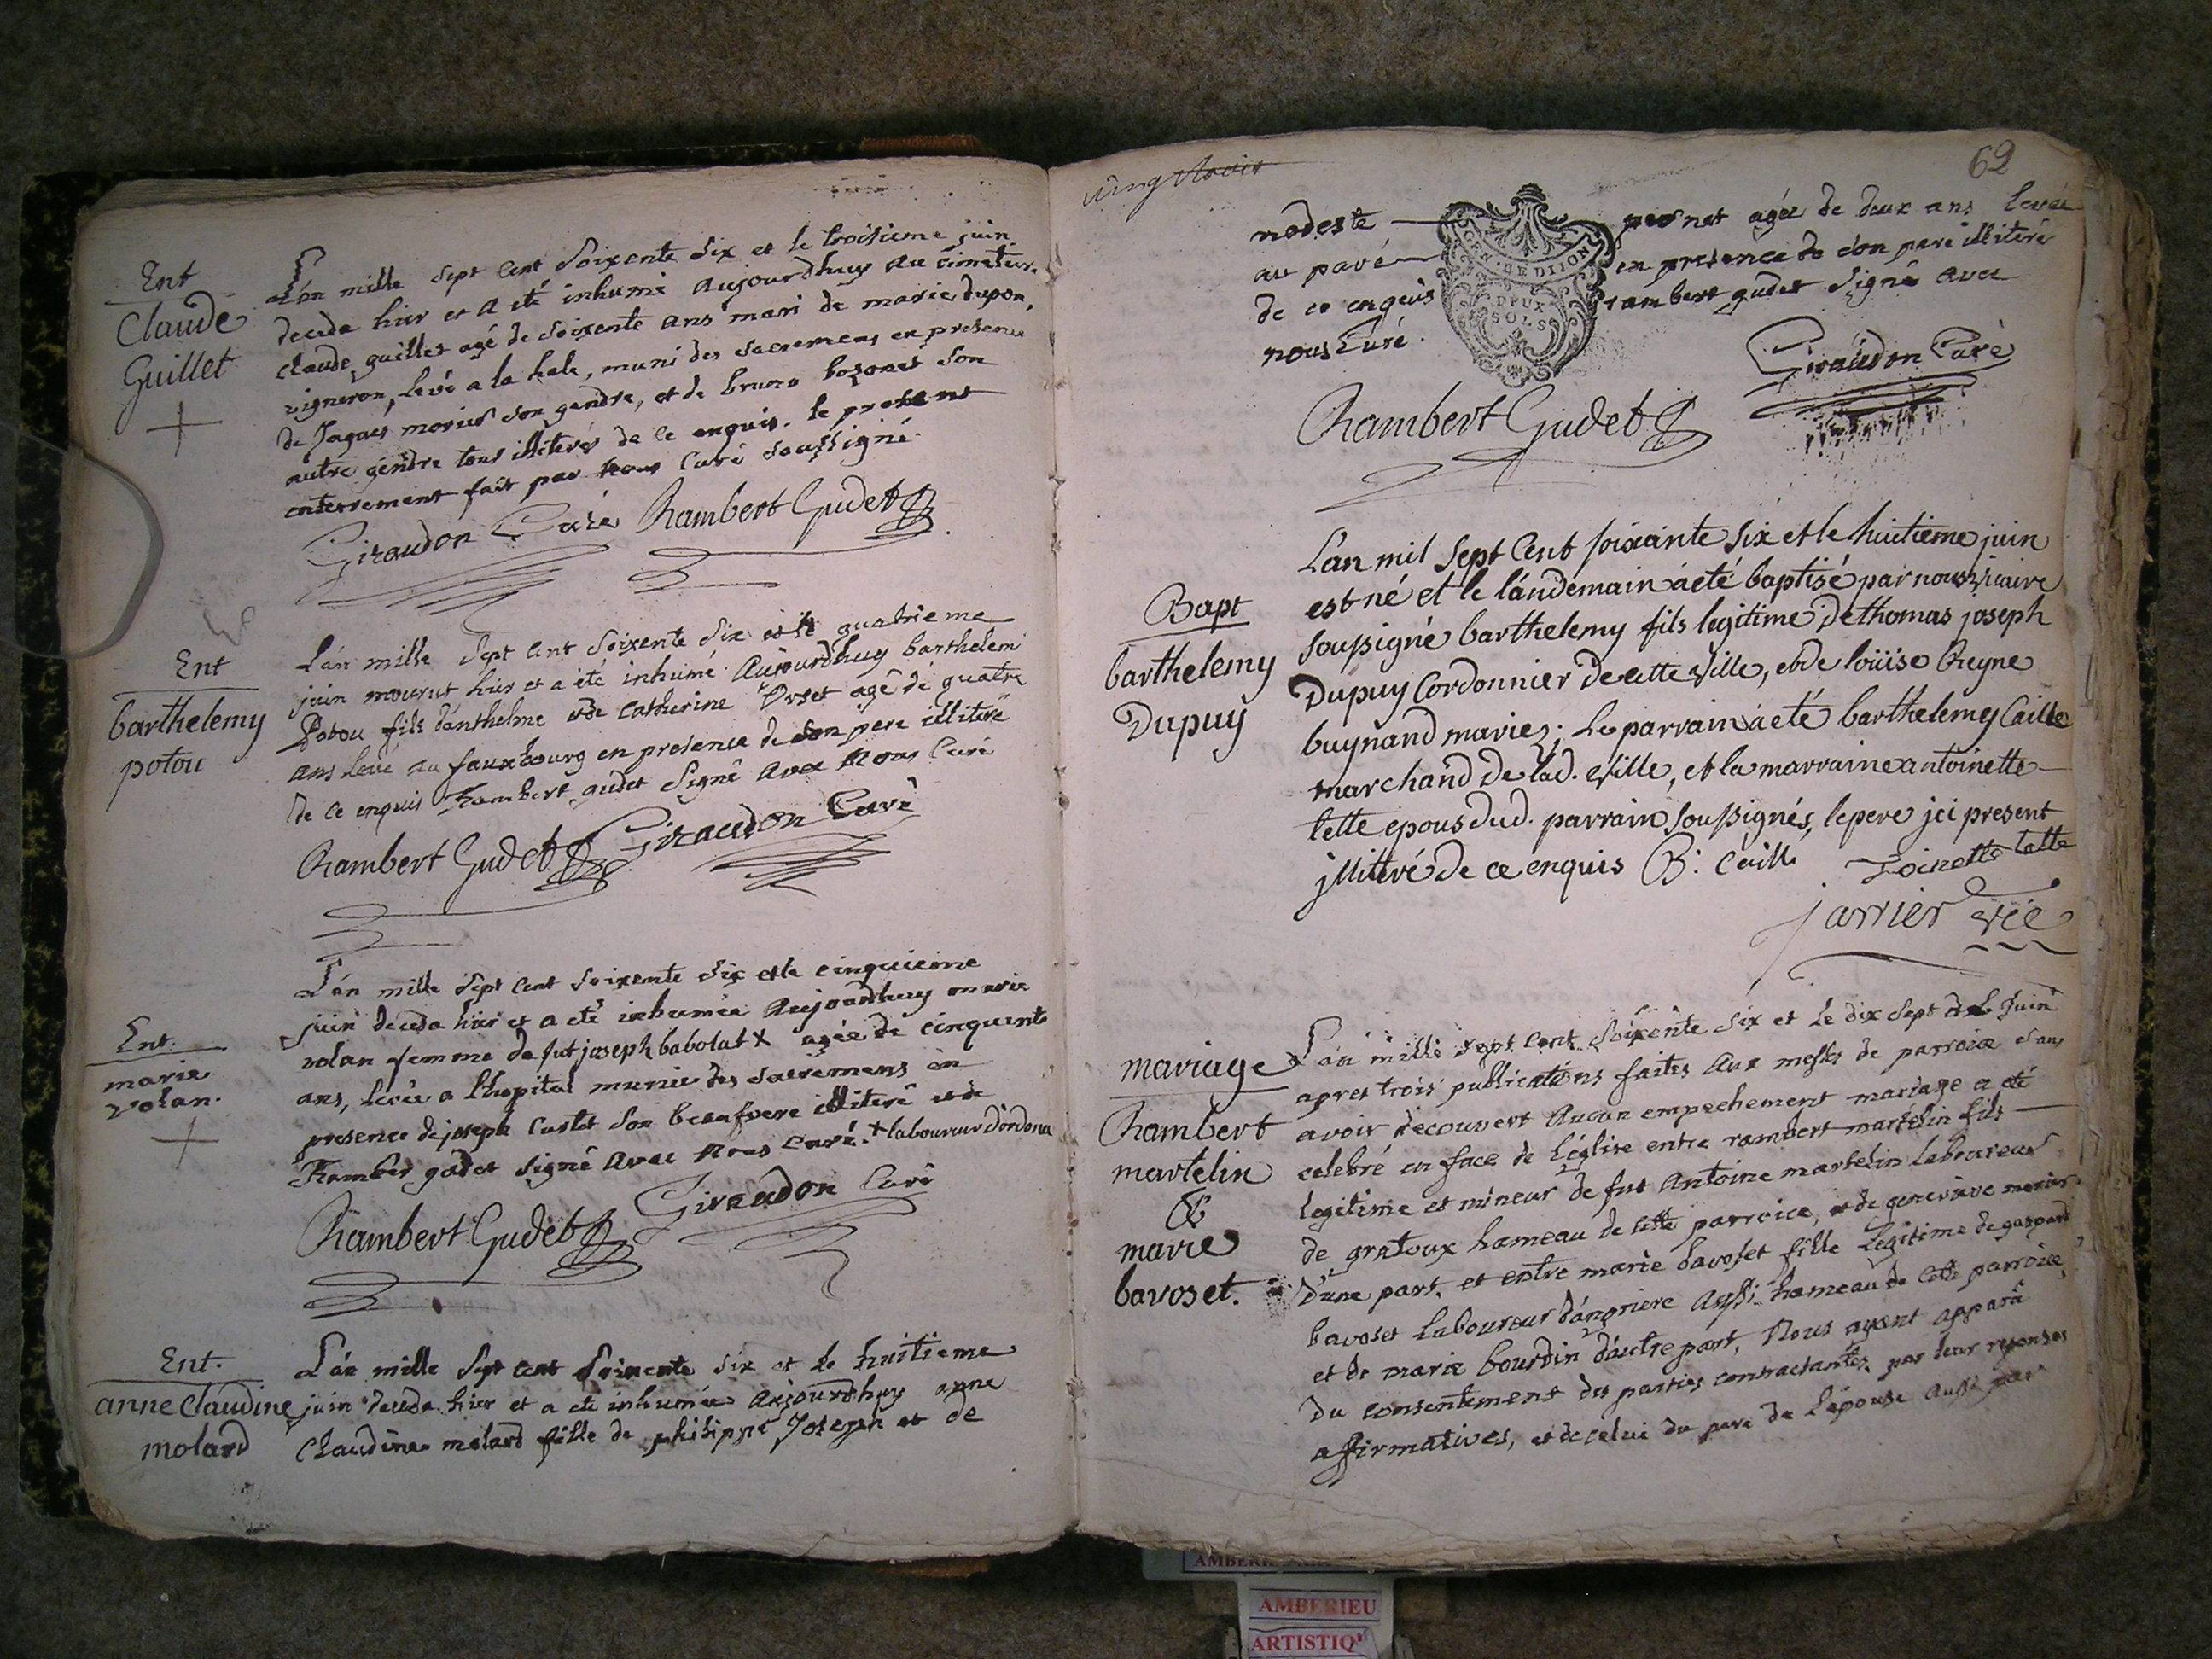 Ent
Claude
Guillet
L'an mille sept cent soixente six et le troisieme juin
deceda hier et a eté inhumé aujourdhuy au cimetiere
claude guillet agé de soixente ans mari de marie dupon,
vigneron, levé a la hale, muni des sacremens en presence
de Jaques morier son gendre, et de bruno bozonet son
autre gendre tous illiterés de ce enquis. le present
enterrement fait par nous curé soussigné.
Giraudon Curé Rambert Gudet
Ent
barthelemy
potou
L'an mille sept cent soixente six et le quatrieme
juin mourut hier et a eté inhumé aujourdhuy barthelemi
Potou fils d'anthelme et de catherine agé de quatre
ans levé au fauxbourg en presence de son pere illiteré
de ce enquis Rambert gudet signé avec nous Curé
Rambert Gudet Giraudon Curé
Ent.
marie
volan.
L'an mille sept cent soixente six et le cinquieme
juin deceda hier et a eté inhumée aujourdhuy marie
volan femme de fut joseph babolat + agée de cinquente
ans, levée a l'hopital munie des sacremens en
presence de joseph Curtet son beaufrere illiteré et de
Rambert gudet signé avec nous curé. + laboureur
Rambert Gudet Giraudon Curé
Ent.
anne Claudine
molard
L'an mille sept cent soixente six et le huitieme
juin deceda hier et a eté inhumée aujourdhuy anne
Claudine molard fille de philippe Joseph et de
62
modeste pernet agée de deux ans levée
au pavé en presence de son pere illiteré
de ce enquis rambert gudet signé avec
nous Curé.
GEN. DE DIJON
DEUX
SOLS
Giraudon Curé
Rambert Gudet
Bapt
barthelemy
Dupuy
L'an mil sept Cent soixante six et le huitieme juin
est né et le landemain a eté baptisé par nous vicaire
soussigné barthelemy fils legitime de thomas joseph
Dupuy Cordonnier de cette ville, et de loüise Reyne
buynand mariés; le parrain a eté barthelemy Caille
marchand de lad. ville, et la marraine antoinette
tette epous dud. parrain soussignés, le pere jci present
jllitéré de ce enquis B: Caille Toinette tette
jarrier vic
mariage
Rambert
martelin
&
marie
bavoset.
L'an mille sept cent soixente six et le dix sept de Juin
apres trois publications faites aux messes de parroice sans
avoir decouvert aucun empechement mariage a eté
celebré en face de l'église entre rambert martelin fils
legitime et mineur de fut Antoine martelin laboureur
de gratoux hameau de cette parroice, et de genevieve morier
d'une part, et entre marie bavoset fille legitime de gaspard
bavoset laboureur d'angriere aussi hameau de cette parroice
et de marie bourdin d'autre part, Nous ayant apparu
du consentement des parties contractantes par leur reponses
affirmatives, et de celui du pere de l'épouse aussi par
AMBERIEU
ARTISTIQ'